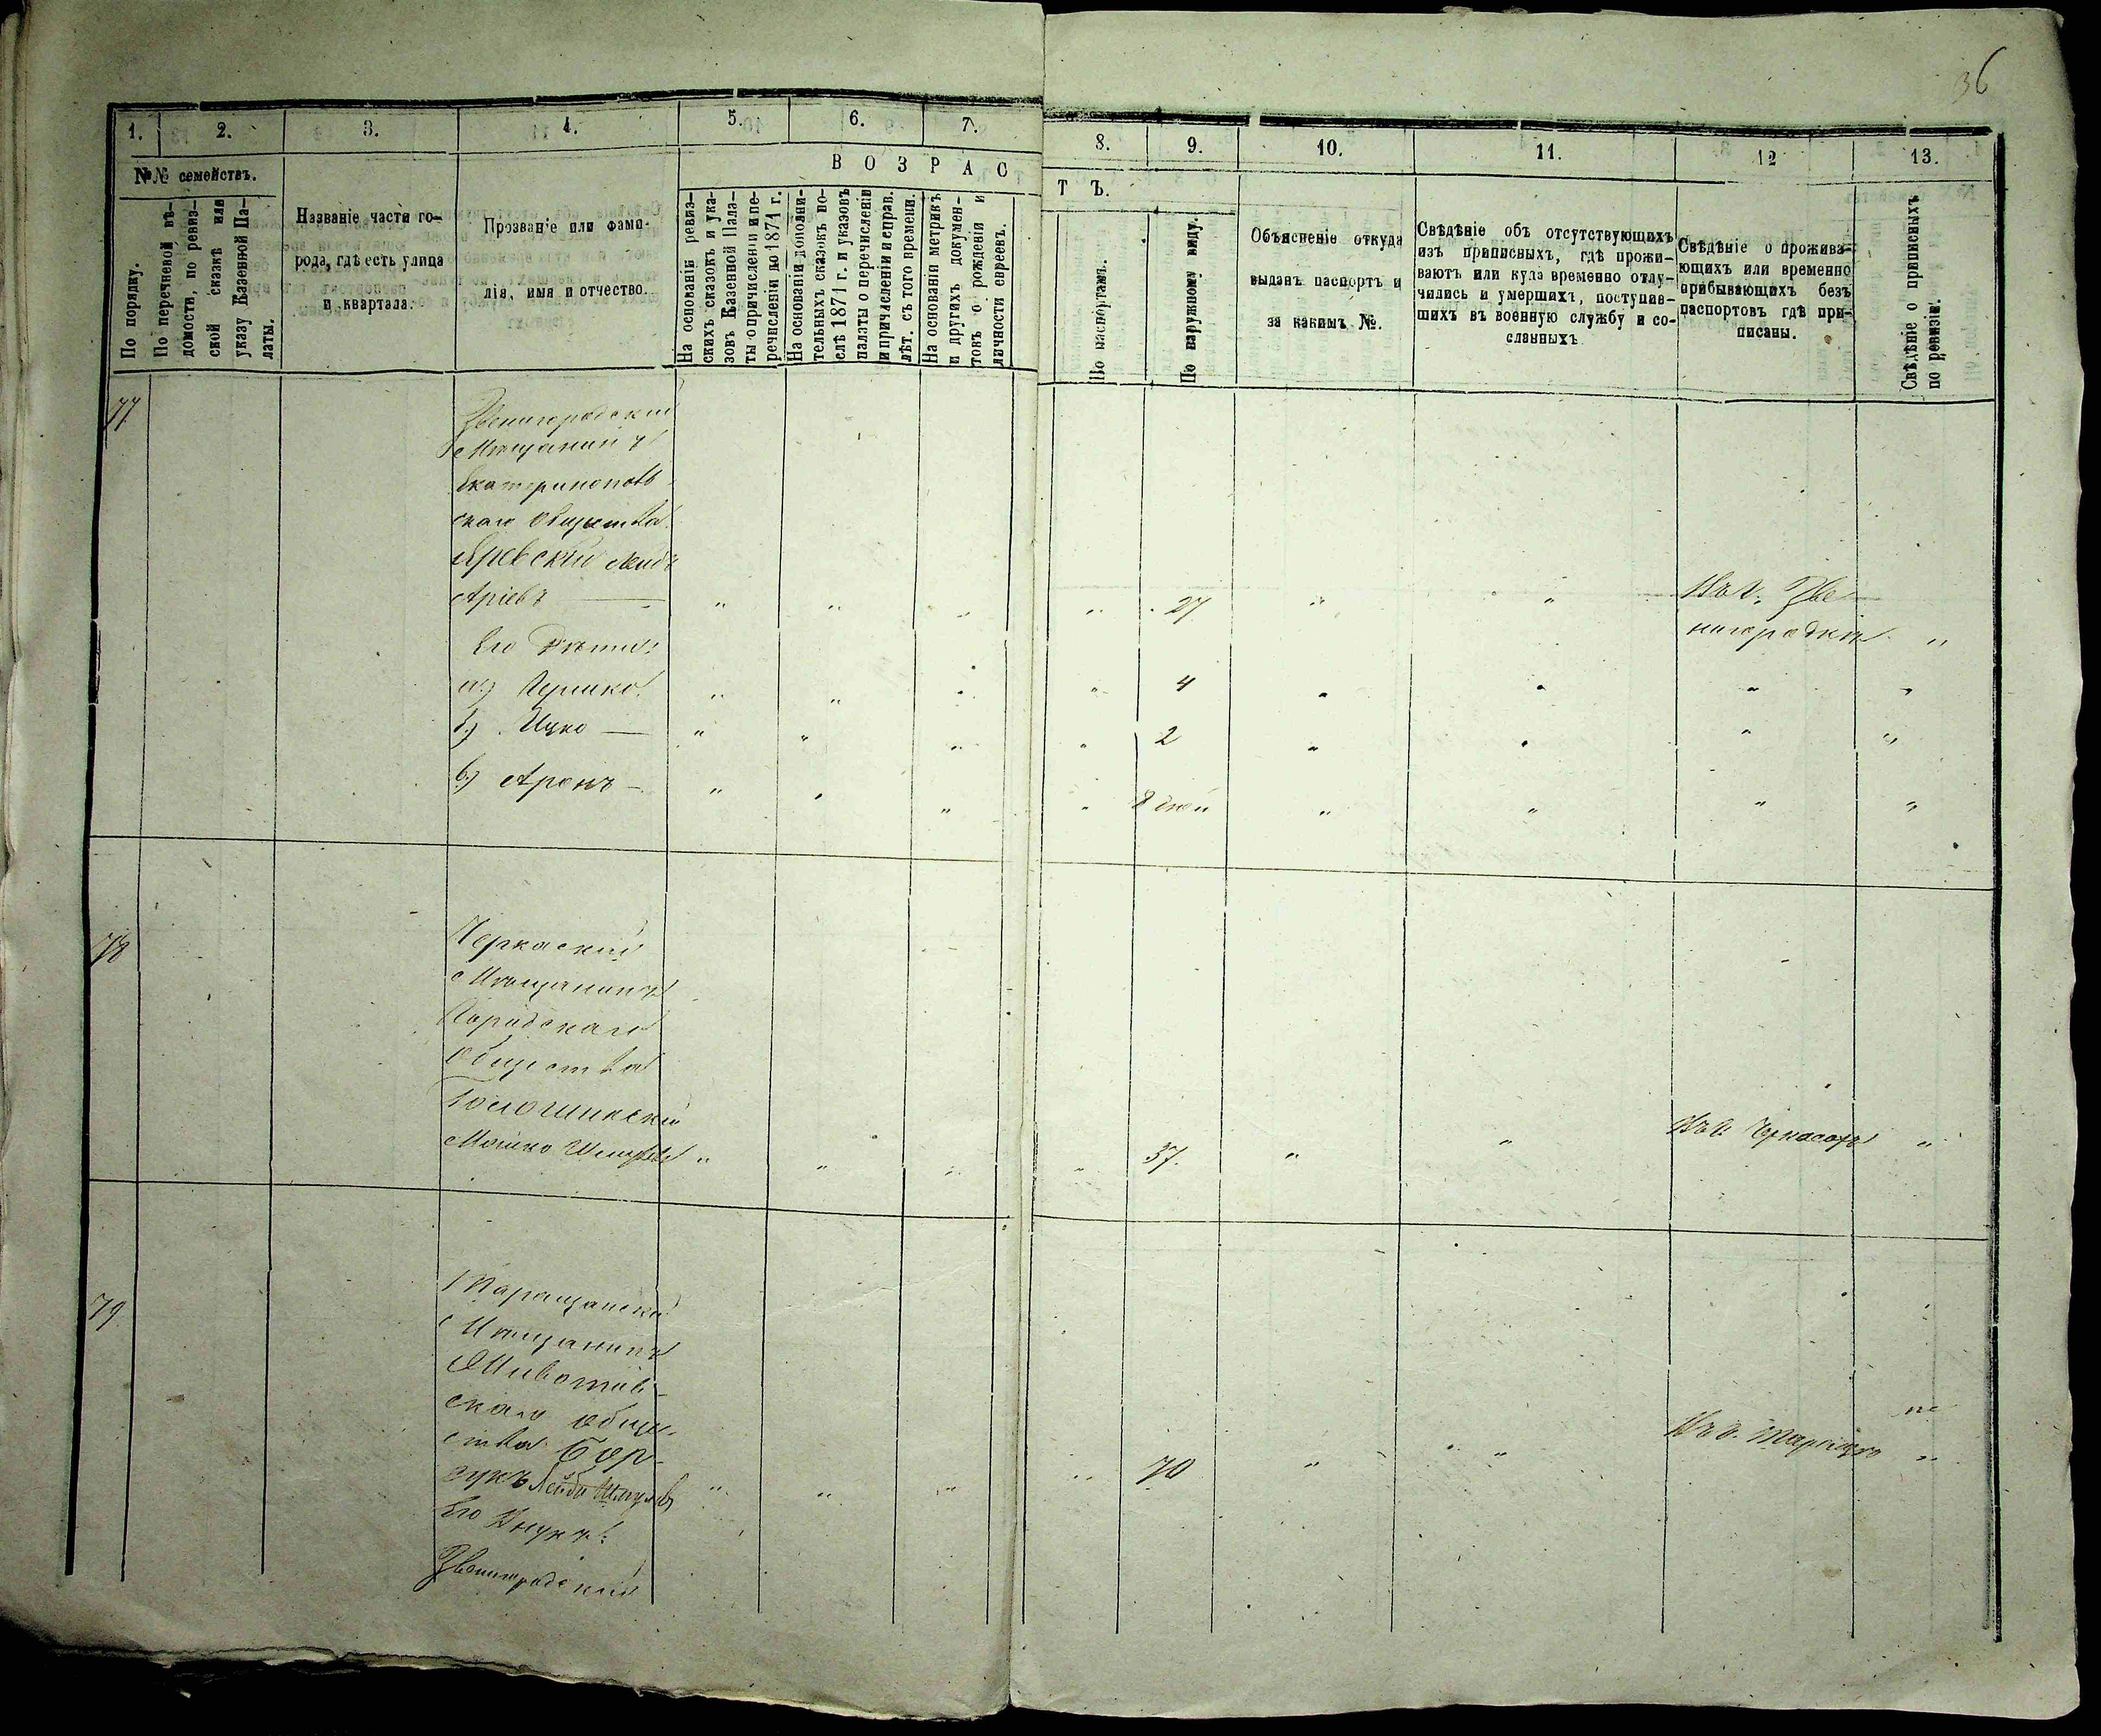 36
1. 2. 3. 4. 5. 6. 7. 8. 9. 10. 11. 12 13.
№№ семействъ.
По порядку.
По перечневой вѣ-
домости, по ревиз-
ской сказкѣ или
указу Казенной Па-
латы.
Названіе части го-
рода, гдѣ есть улица
и квартала.
Прозваніе или фами-
лія, имя и отчество.
ВОЗРАС
ТЪ.
На основаніи ревиз-
скихъ сказокъ и ука-
зовъ Казенной Пала-
ты о причисленіи и пе-
речисленіи до 1871 г.
На основаніи дополни-
тельныхъ сказокъ по-
слѣ 1871 г. и указовъ
палаты о перечисленіи
и причисленіи и справ.
лѣт. съ того времени.
На основаніи метрикъ
и другихъ докумен-
товъ о рожденіи и
личности евреевъ.
По паспортамъ.
По наружному виду.
Объясненіе откуда
выданъ паспортъ и
за какимъ №.
Свѣдѣніе объ отсутствующихъ
изъ приписныхъ, гдѣ прожи-
ваютъ или куда временно отлу-
чились и умершихъ, поступив-
шихъ въ военную службу и со-
сланныхъ
Свѣдѣніе о прожива-
ющихъ или временно
прибывающихъ безъ
паспортовъ гдѣ при-
писаны.
Свѣдѣніе о приписныхъ
по ревизіи.
77
Звенигородский
Мещанинъ
Екатеринополь
скаго Общества
Аріевъ — " " " " 27 " "
нигородкѣ "
Его Дѣти:
а) Гершко " " " " 4 " " " "
б) Ицко — " " " " 2 " " " "
в) Аронъ — " " " " 8 дней " " " "
78
Черкаский
Мещанинъ
Городскаго
Общества
Мошко " " " " 37. " " Черкасахъ "
79
Таращанский
Мещанинъ
Животов-
скаго обще-
ства Бор-
сукъ Лейба " " " " 70 " " "
Его Внукъ:
Звенигородский